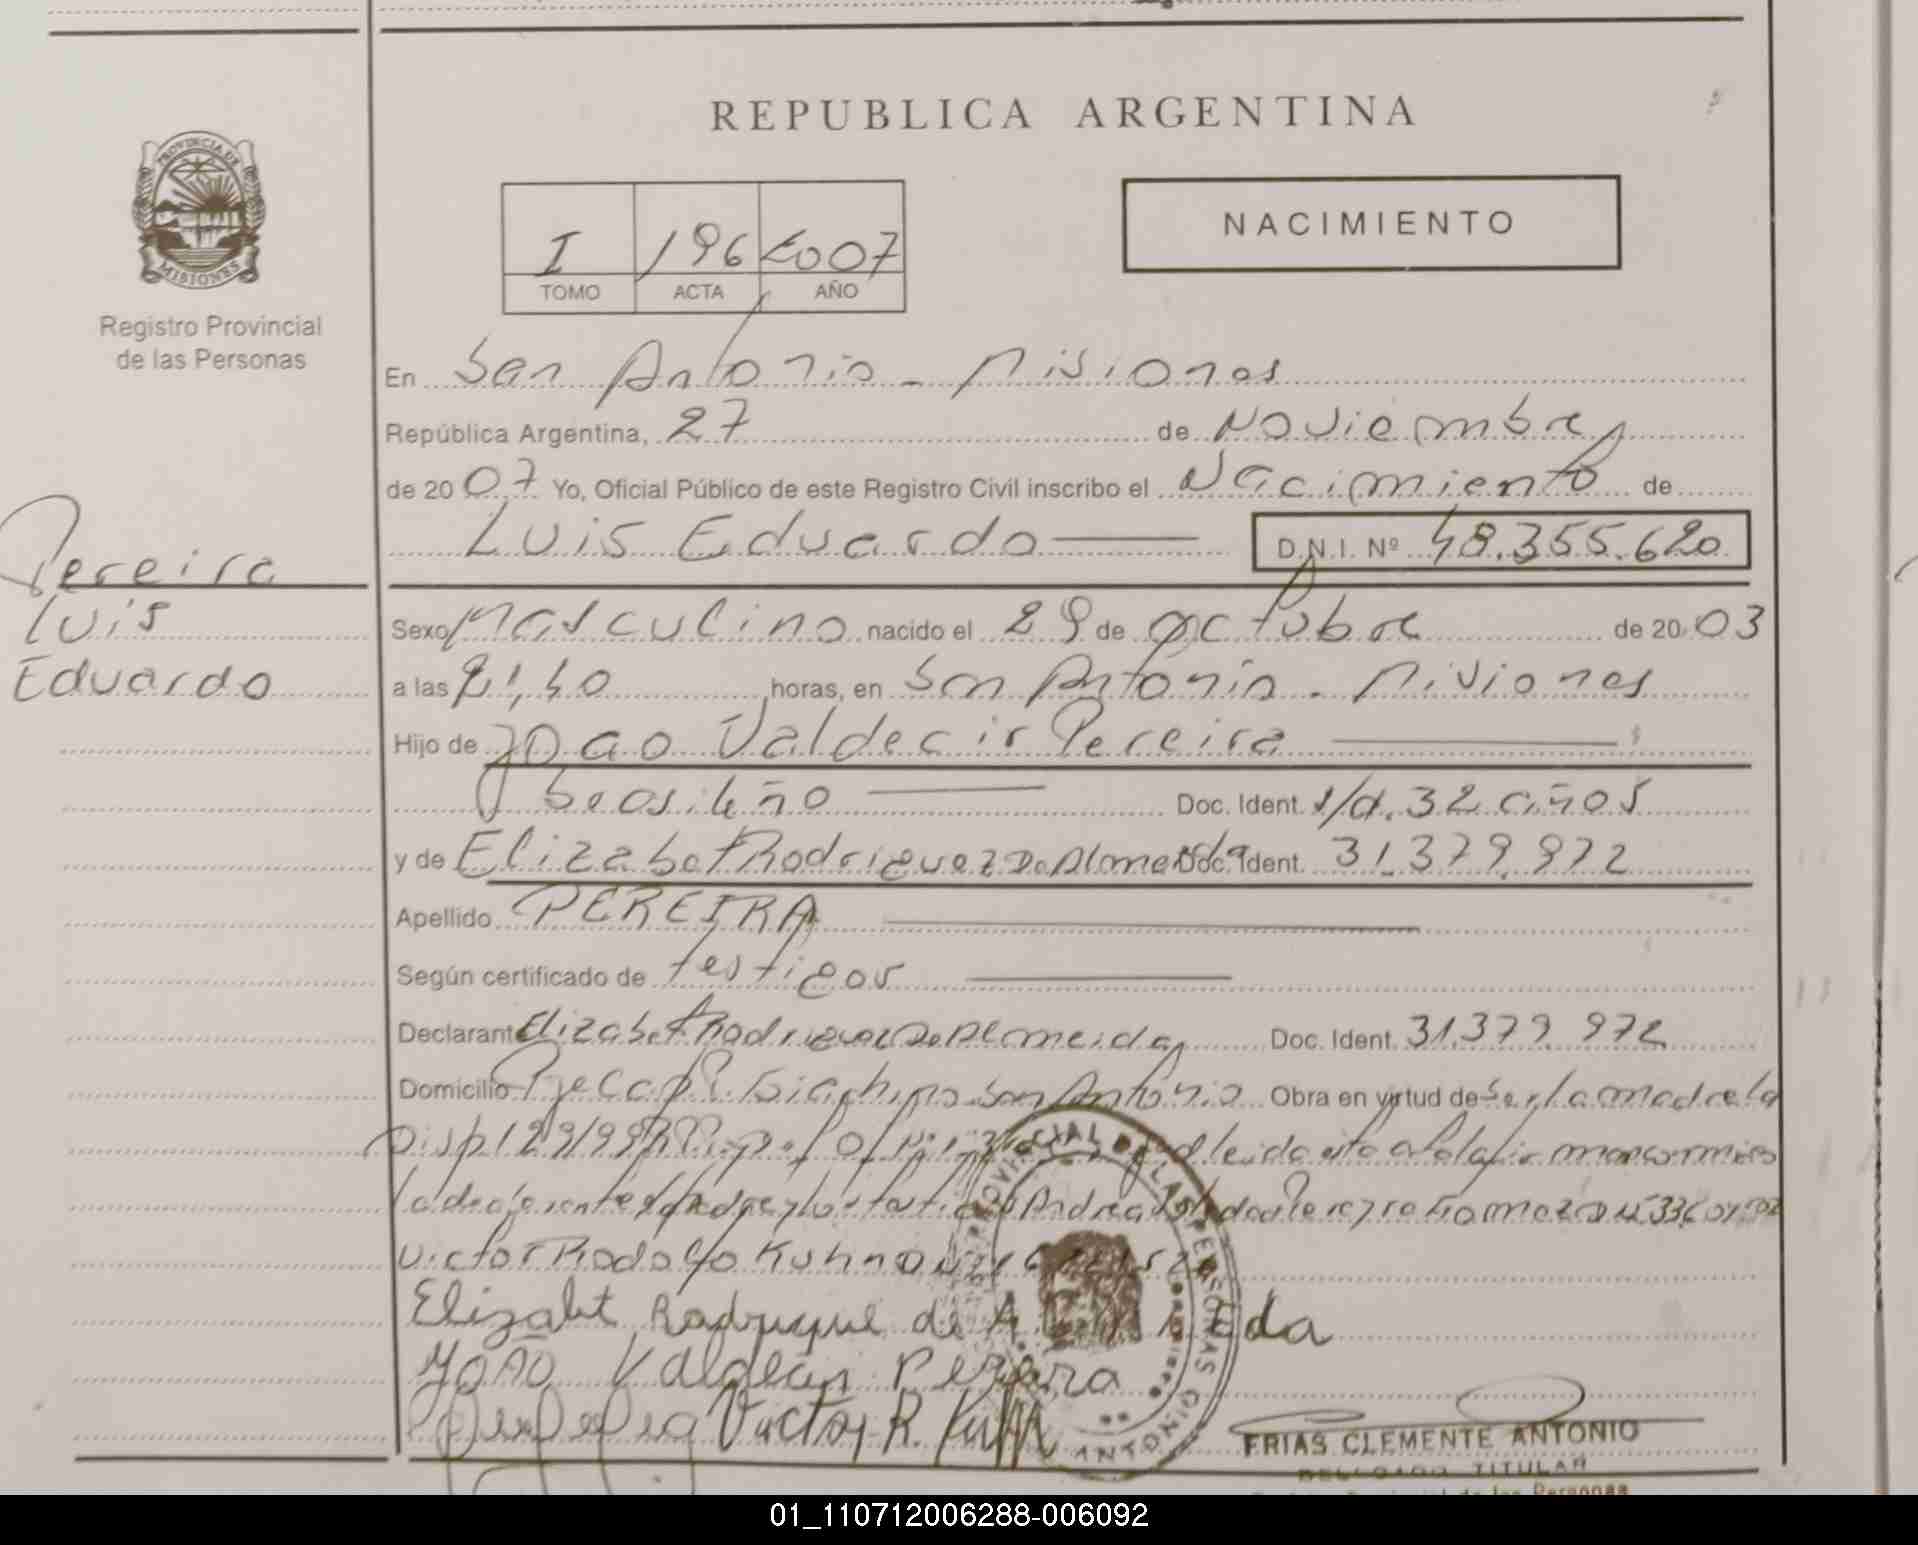 REPUBLICA ARGENTINA
PROVINCIA DE
MISIONES
Registro Provincial
de las Personas
NACIMIENTO
I 196 2007
TOMO ACTA AÑO
En San Antonio - Misiones
República Argentina, 27 de Noviembre
de 2007 Yo, Oficial Público de este Registro Civil inscribo el Nacimiento de
Luis Eduardo D.N.I. Nº 48.355.620
Pereira
Luis
Eduardo
Sexo Masculino nacido el 29 de octubre de 2003
a las 21,40 horas, en San Antonio - Misiones
Hijo de Joao Valdecir Pereira
brasileño Doc. Ident. s/d. 32 años
y de Elizabet Rodriguez De Almeida Doc. Ident. 31.379.972
Apellido PEREIRA
Según certificado de testigos
Declarante Elizabet Rodriguez De Almeida Doc. Ident. 31.379.972
Domicilio San Antonio Obra en virtud de Ser la madre la
Disp 129/99 leida esta
la declarante
Victor Rodolfo Kuhn
Elizabet de
Joao Pereira
Victor R.
FRIAS CLEMENTE ANTONIO
DELEGADO TITULAR
de las Personas
01_110712006288-006092